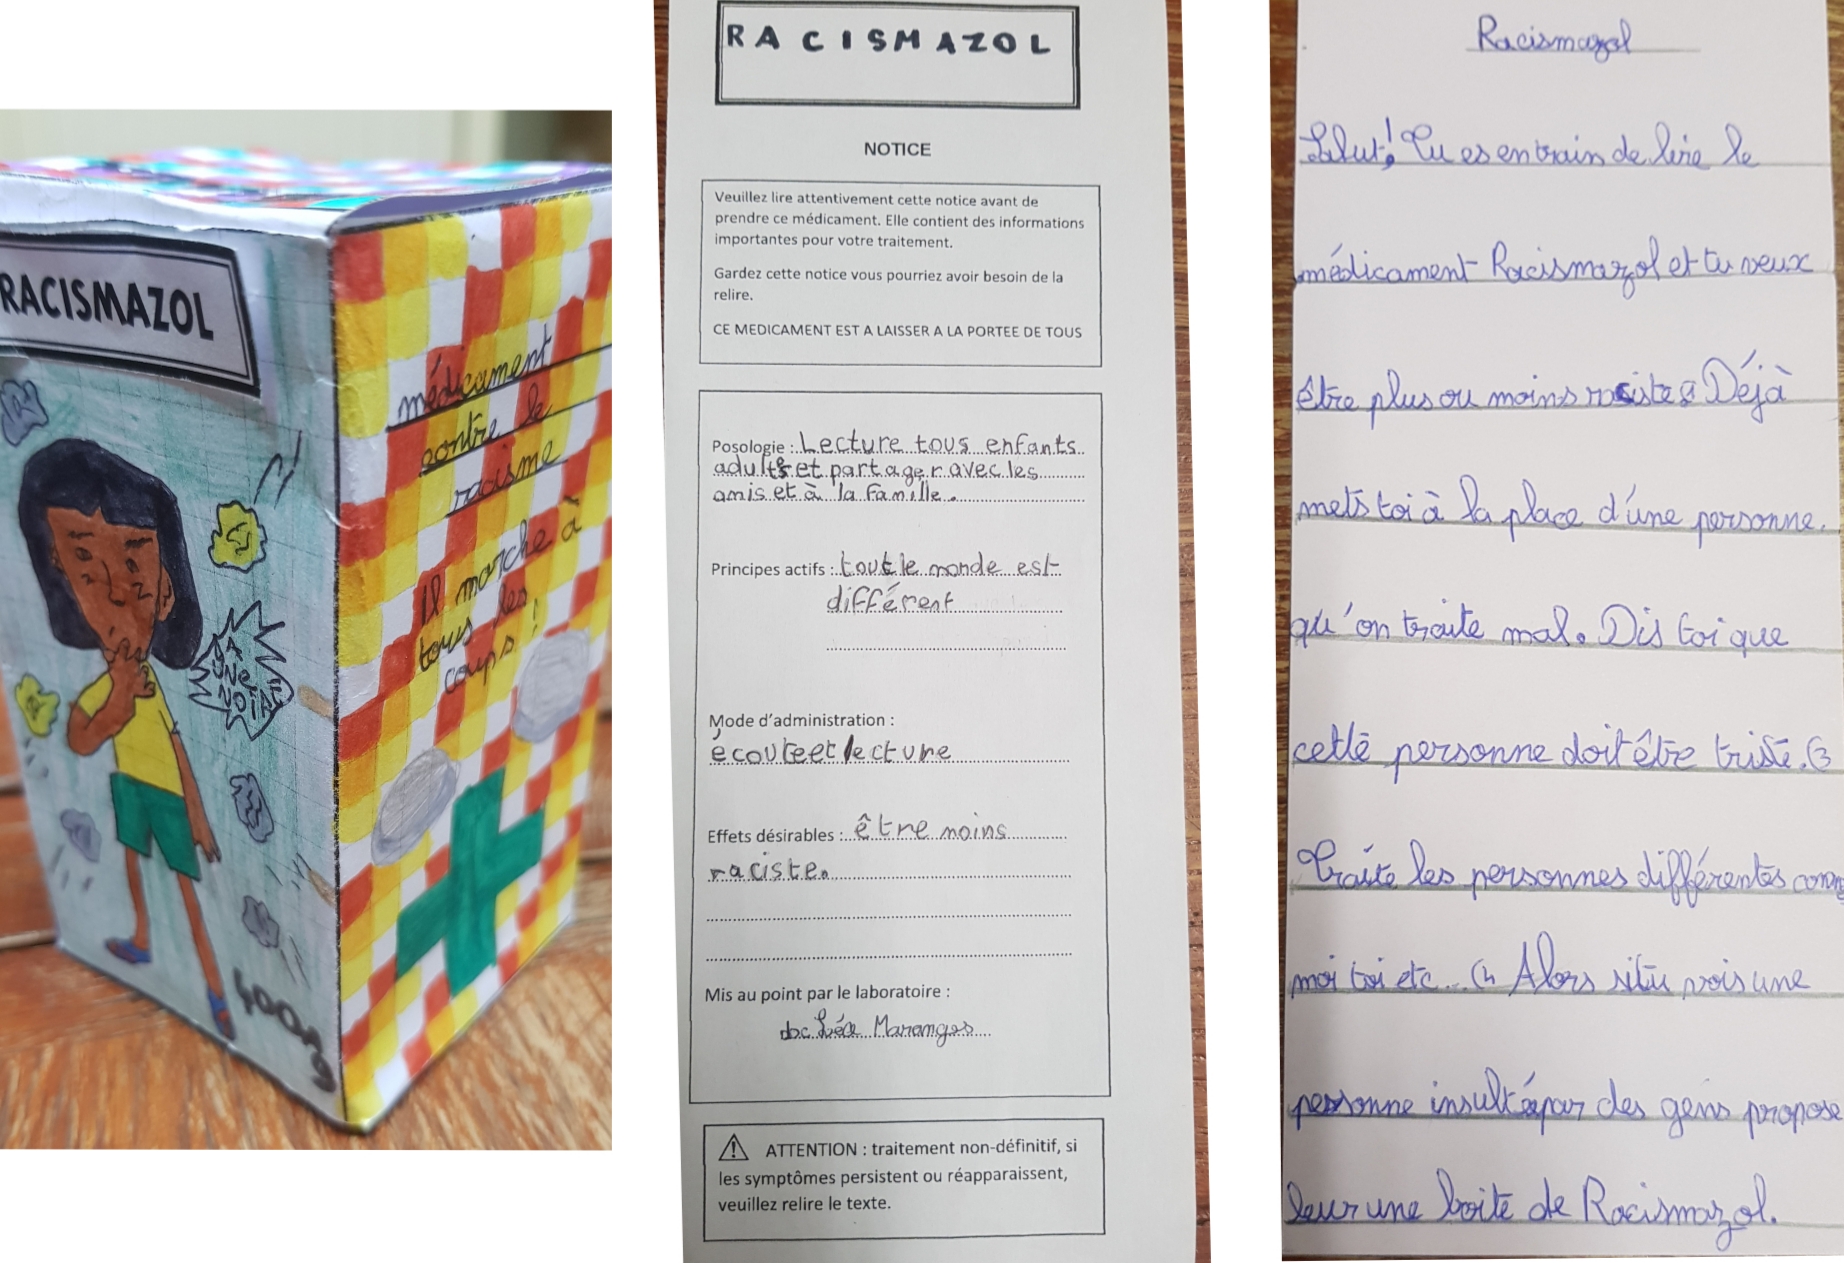 RACISMAZOL
400mg
médicament
contre le
racisme
Il marche à
tous les
coups !
RACISMAZOL
NOTICE
Veuillez lire attentivement cette notice avant de
prendre ce médicament. Elle contient des informations
importantes pour votre traitement.
Gardez cette notice vous pourriez avoir besoin de la
relire.
CE MEDICAMENT EST A LAISSER A LA PORTEE DE TOUS
Posologie : Lecture tous enfants
adultes et partager avec les
amis et à la famille.
Principes actifs : tout le monde est
différent
Mode d'administration :
écoute et lecture
Effets désirables : être moins
raciste.
Mis au point par le laboratoire :
doc Léa Marangos
ATTENTION : traitement non-définitif, si
les symptômes persistent ou réapparaissent,
veuillez relire le texte.
Racismazol
Salut! Tu es en train de lire le
médicament Racismazol et tu veux
être plus ou moins raciste Déjà
mets toi à la place d'une personne
qu'on traite mal. Dis toi que
cette personne doit être triste.
Traite les personnes différentes comme
moi toi etc... Alors si tu vois une
personne insulté par des gens propose
leur une boite de Racismazol.